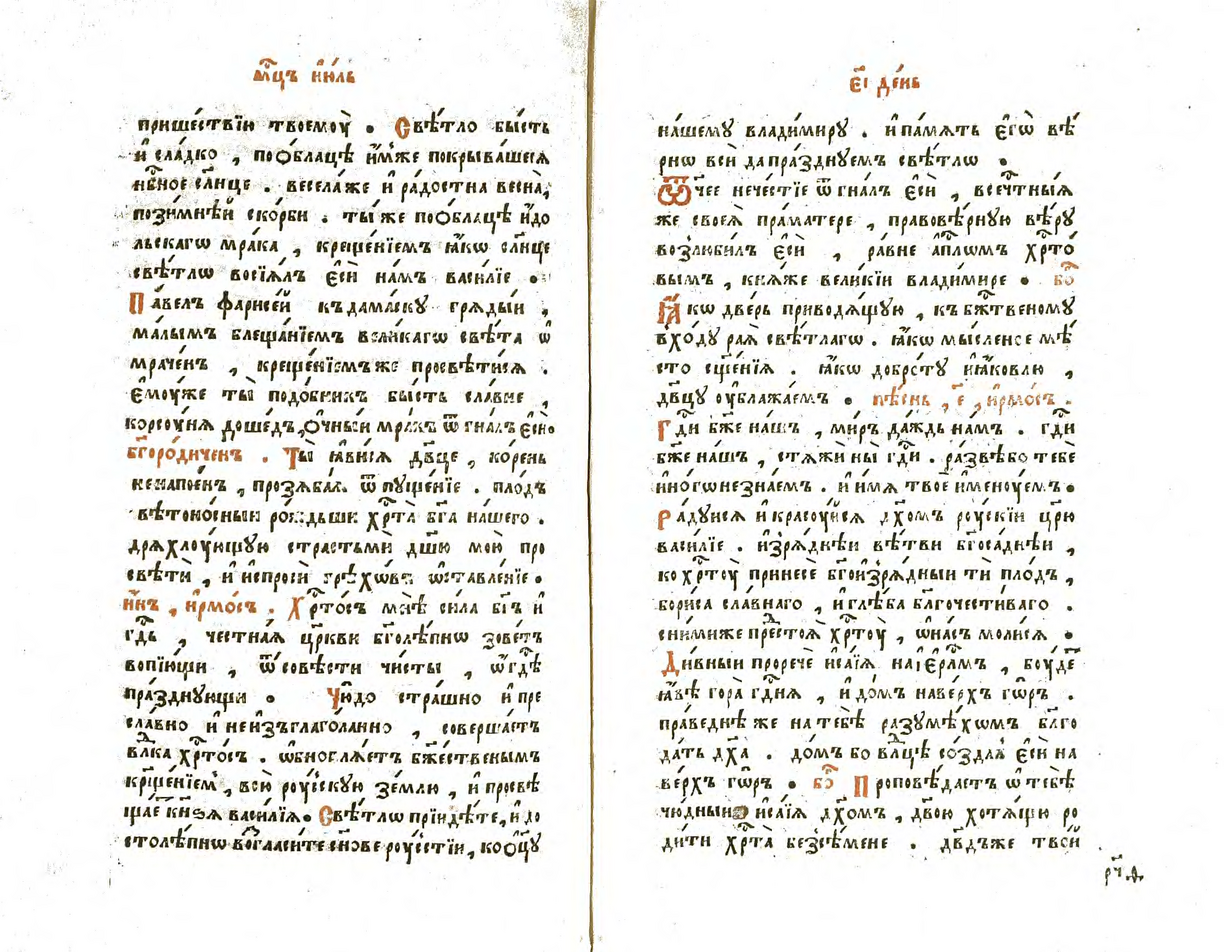 мⷭ҇цъ ию́ль
прише́ствїю твоемоу̀ . Свѣ́тло бы́сть
и҆ сла́дко , поѻ҆́блацѣ и҆́мже покрыва́шесѧ
нбⷭ҇ное сл҃нце . весела́же и҆ ра́достна весна̀,
позимнѣ́й ско́рби . ты́ же поѻ҆́блацѣ и҆́до
льскагѡ мра́ка , креще́нїемъ ꙗ҆́кѡ сл҃нце
свѣ́тлѡ восїѧ́лъ є҆сѝ на́мъ васи́лїе .
Па́велъ фарисе́й къ дама́ску грѧды́и ,
ма́лымъ блеща́нїемъ вели́кагѡ свѣ́та ѡ҆
мраче́нъ , креще́нїемъ же просвѣти́сѧ .
є҆моу́же ты̀ подо́бникъ бы́сть сла́вне ,
корсоу́нѧ доше́дъ, ѻ҆́чныи мра́къ ѿгна́лъ є҆сѝ
бг҃оро́диченъ . Ты̀ ꙗ҆ви́сѧ дв҃це , ко́рень
ненапое́нъ , прозѧба́ѧ ѿпуще́нїе . пло́дъ
свѣтоно́сныи ро́ждьши хрⷭ҇та̀ бг҃а на́шего .
дрѧхлоу́ющую страстьмѝ дш҃ю мою̀ про
свѣтѝ , и҆ и҆спросѝ грѣхо́въ ѡ҆ставле́нїе .
и҆́нъ , и҆рмо́съ . Хрⷭ҇то́съ мнѣ̀ си́ла бг҃ъ и҆
гдⷭ҇ь , честна́ѧ цр҃кви бг҃олѣ́пнѡ зове́тъ
вопїю́щи , ѿ со́вѣсти чи́сты , ѡ҆ гдⷭ҇ѣ
пра́зднующи . Чю́до стра́шно и҆ пре
сла́вно и҆ неи҆зъглаго́ланно , соверша́етъ
влⷣка хрⷭ҇то́съ . ѡ҆бновлѧ́етъ бж҃е́ственымъ
крⷭ҇ще́нїемъ , всю̀ роу́сскую зе́млю , и҆ просвѣ
ща́е кн҃зѧ васи́лїѧ . Свѣ́тлѡ прїидѣ́те, и҆ до
столѣ́пнѡ богагласи́те сно́ве роу́сстїи, ко ѻ҆ц҃у
є҃і де́нь
на́шему влади́миру . и҆ па́мѧть є҆гѡ̀ вѣ́
рнѡ всѝ да пра́зднуемъ свѣ́тлѡ .
Ѿчее нече́стїе ѿгна́лъ є҆сѝ , всечⷭ҇тны́ѧ
же своеѧ̀ пра́матере , правовѣ́рную вѣ́ру
возлюби́лъ є҆сѝ , ра́вне а҆пⷭ҇лѡмъ хрⷭ҇то́
вымъ , кнѧ́же вели́кїи влади́мире . боⷢ҇
Ꙗ҆́кѡ две́рь приводѧ́щую , къ бжⷭ҇твеному
вхо́ду раѧ̀ свѣ́тлагѡ . ꙗ҆́кѡ мы́сленое мѣ́
сто сщ҃е́нїѧ . ꙗ҆́кѡ добро́ту и҆ꙗ́ковлю ,
дв҃цу оу҆блажа́емъ . пѣ́снь , є҃ , и҆рмо́съ .
Гдⷭ҇и бж҃е на́шъ , ми́ръ да́ждь на́мъ . гдⷭ҇и
бж҃е на́шъ , стѧжѝ ны̀ гдⷭ҇и . ра́звѣ бо тебѐ
и҆но́гѡ не зна́емъ . и҆ и҆́мѧ твоѐ и҆мену́емъ .
Ра́дуисѧ и҆ красоу́йсѧ дх҃омъ роу́скїи цр҃ю
васи́лїе . и҆зрѧ́днѣи вѣ́тви бг҃оса́днѣи ,
ко хрⷭ҇тоу̀ принесѐ бг҃оизрѧ́дныи тѝ пло́дъ ,
бори́са сла́внаго , и҆ глѣ́ба бл҃гочести́ваго .
сни́миже престоѧ̀ хрⷭ҇тоу̀ , ѡ҆ на́съ моли́сѧ .
Ди́вныи прорече и҆са́їѧ на і҆єрⷭ҇ли́мъ , боу́деⷮ
ꙗ҆́вѣ гора̀ гдⷭ҇нѧ , и҆ до́мъ на ве́рхъ го́ръ .
пра́веднѣ же на тебѣ̀ разумѣ́хомъ бл҃го
да́ть дх҃а . до́мъ бо влⷣцѣ созда́ѧ є҆сѝ на
ве́рхъ го́ръ . боⷢ҇ Проповѣ́даетъ ѡ҆ тебѣ̀
чю́дныи и҆са́їѧ дх҃омъ , дв҃ою хотѧ́щю ро
ди́ти хрⷭ҇та̀ безсѣ́мене . дв҃дъже тво́й
рч҃д